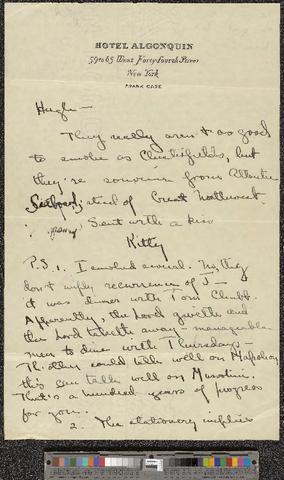 HOTEL ALGONQUIN
59 to 65 West Forty-Fourth Street
New York
FRANK CASE
Hugh —
They really aren't as good
to smoke as Chesterfields, but
they're souvenir from Atlantic
Seaboard instead of Great Northwest
Sent with a kiss
Kitty
P.S. 1. I smoked several. No, they
don't recurrence of J—
it was dinner with Tom
Apparently, the Lord giveth and
the Lord taketh away — manageable
men to dine with Thursdays —
T'other could talk well on Napoleon
this can talk well on Mussolini.
That's a hundred years of progress
for you.
2. The stationery implies